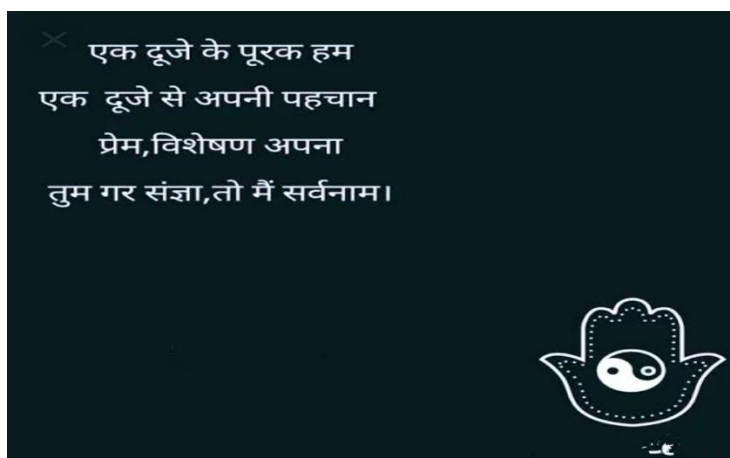 एक दूजे के पूरक हम
एक दूजे से अपनी पहचान
प्रेम,विशेषण अपना
तुम गर संज्ञा,तो मैं सर्वनाम।